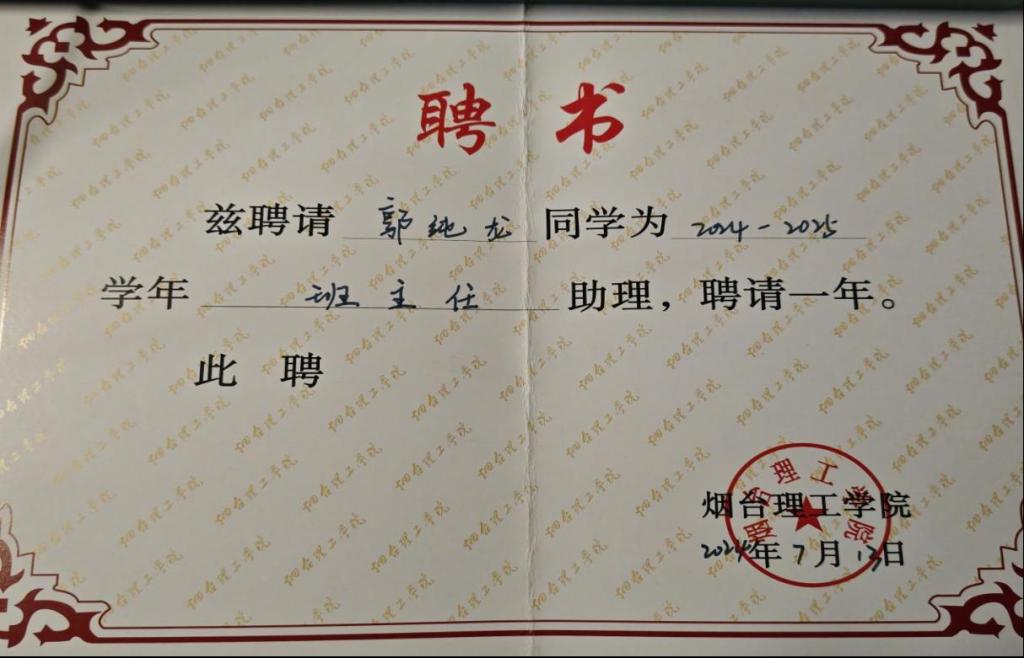 聘书
兹聘请 郭纯龙 同学为 2024-2025
学年 班主任 助理，聘请一年。
此聘
烟台理工学院
2024年7月13日
烟台理工学院